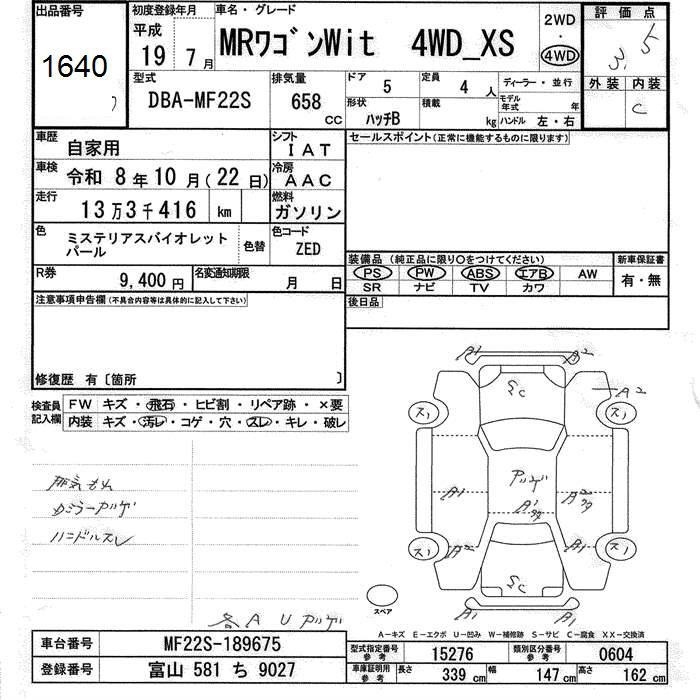 出品番号
1640
初度登録年月
平成
19 7 月
車名・グレード
MRワゴンWit 4WD_XS
2WD
・
4WD
評価点
3.5
外装 内装
C
型式
DBA-MF22S
排気量
658 CC
ドア 5
定員 4 人
形状 ハッチB
積載 kg
ディーラー・並行
モデル年式 年
ハンドル 左・右
車歴 自家用
シフト IAT
セールスポイント(正常に機能するものに限ります)
車検 令和 8 年 10 月(22 日)
冷房 AAC
走行 13 万 3 千 416 km
燃料 ガソリン
色 ミステリアスバイオレット
パール
色替
色コード ZED
装備品(純正品に限り○をつけてください)
PS PW ABS エアB AW
SR ナビ TV カワ
新車保証書
有・無
R券 9,400 円
名変通知期限 月 日
後日品
注意事項申告欄(不具合内容等は具体的に記入して下さい)
修復歴 有〔箇所 〕
検査員
記入欄
FW キズ・飛石・ヒビ割・リペア跡・×要
内装 キズ・汚レ・コゲ・穴・スレ・キレ・破レ
排気もれ
カラーアツゲ
ハンドルスレ
各A U アツゲ
A1 A2
A2
スC
ス1 ス1
アツゲ
A1 A1 A2
ス1 ス1
A2 A1
SC
A1 A1
スペア
A-キズ E-エクボ U-凹み W-補修跡 S-サビ C-腐食 XX-交換済
車台番号 MF22S-189675
登録番号 富山 581 ち 9027
型式指定番号
参考
15276
類別区分番号
参考
0604
車庫証明用
参考
長さ 339 cm
幅 147 cm
高さ 162 cm